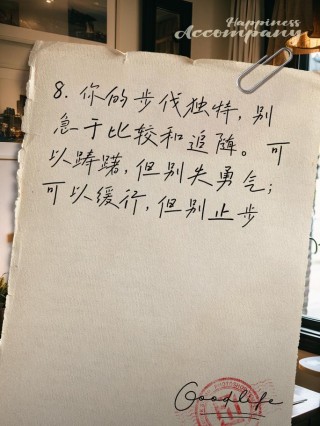 Happiness
Accompany
8. 你的步伐独特，别
急于比较和追随。可
以踌躇，但别失勇气；
可以缓行，但别止步
Goodlife